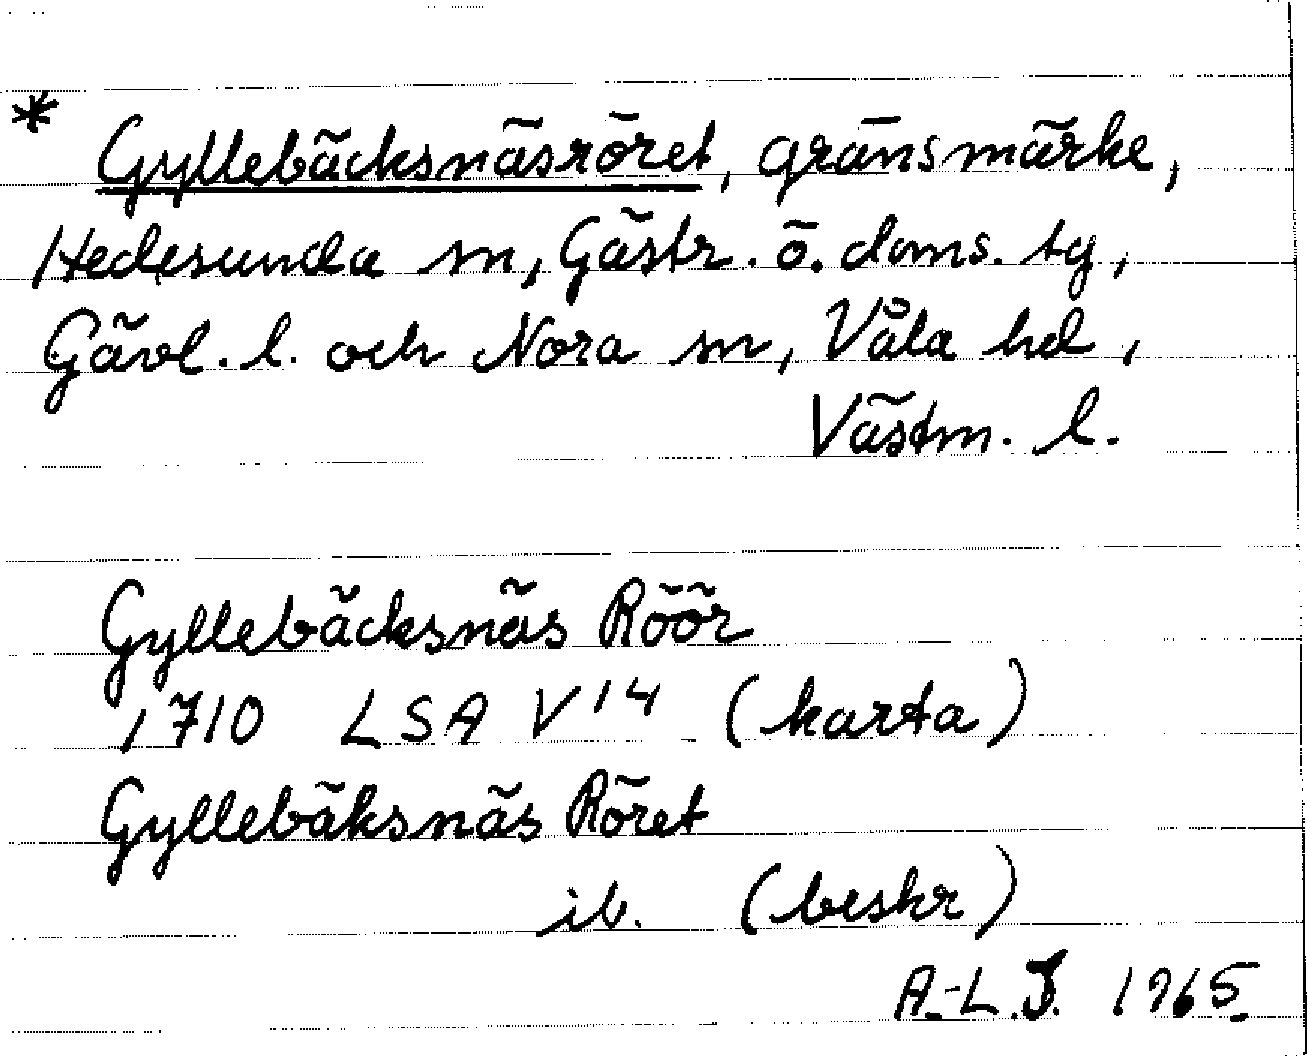 * Gyllebäcksnäsröret, gränsmärke,
Hedesunda sn, Gästr. ö. doms. tg,
Gävl. l. och Nora sn, Våla hd,
Västm. l.
Gyllebäcksnäs Röör
1710 LSA V 14 (karta)
Gyllebäksnäs Röret
ib. (beskr)
A.-L.J. 1965